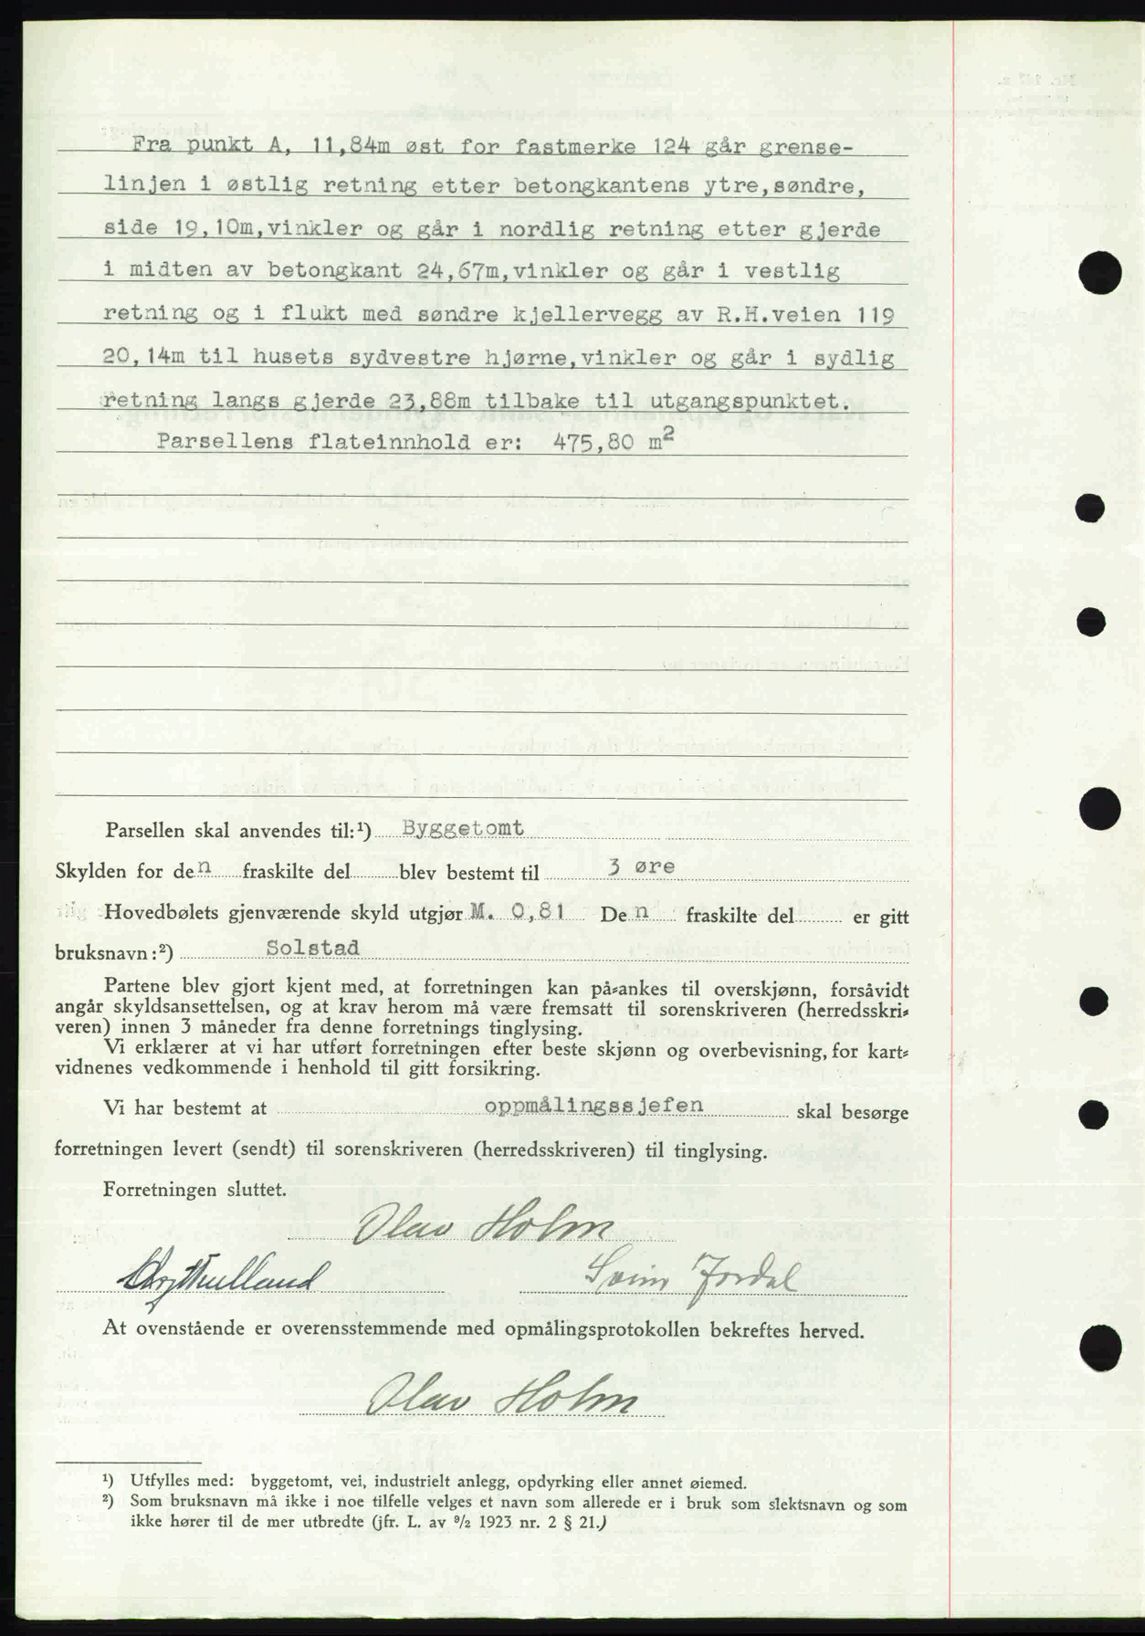 Fra punkt A, 11,84m øst for fastmerke 124 går grense-
linjen i østlig retning etter betongkantens ytre,søndre,
side 19,10m,vinkler og går i nordlig retning etter gjerde
i midten av betongkant 24,67m,vinkler og går i vestlig
retning og i flukt med søndre kjellervegg av R.H.veien 119
20,14m til husets sydvestre hjørne,vinkler og går i sydlig
retning langs gjerde 23,88m tilbake til utgangspunktet.
Parsellens flateinnhold er: 475,80 m²
Parsellen skal anvendes til:¹) Byggetomt
Skylden for den fraskilte del blev bestemt til 3 øre
Hovedbølets gjenværende skyld utgjør M. 0,81 Den fraskilte del er gitt
bruksnavn:²) Solstad
Partene blev gjort kjent med, at forretningen kan på-ankes til overskjønn, forsåvidt
angår skyldsansettelsen, og at krav herom må være fremsatt til sorenskriveren (herredsskri-
veren) innen 3 måneder fra denne forretnings tinglysing.
Vi erklærer at vi har utført forretningen efter beste skjønn og overbevisning, for kart-
vidnenes vedkommende i henhold til gitt forsikring.
Vi har bestemt at oppmålingssjefen skal besørge
forretningen levert (sendt) til sorenskriveren (herredsskriveren) til tinglysing.
Forretningen sluttet.
Olav Holm
Svein Jordal
At ovenstående er overensstemmende med opmålingsprotokollen bekreftes herved.
Olav Holm
¹) Utfylles med: byggetomt, vei, industrielt anlegg, opdyrking eller annet øiemed.
²) Som bruksnavn må ikke i noe tilfelle velges et navn som allerede er i bruk som slektsnavn og som
ikke hører til de mer utbredte (jfr. L. av ⁹/₂ 1923 nr. 2 § 21.)